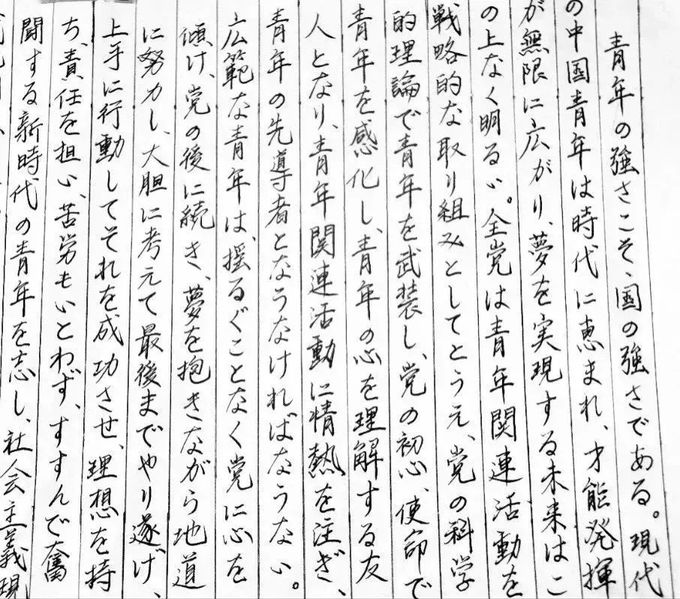 青年の強さこそ、国の強さである。現代
の中国青年は時代に恵まれ、才能発揮
が無限に広がり、夢を実現する未来はこ
の上なく明るい。全党は青年関連活動を
戦略的な取り組みとしてとうえ、党の科学
的理論で青年を武装し、党の初心、使命で
青年を感化し、青年の心を理解する友
人となり、青年関連活動に情熱を注ぎ、
青年の先導者となうなければならない。
広範な青年は、揺るぐことなく党に心を
傾け、党の後に続き、夢を抱きながら地道
に努力し、大胆に考えて最後までやり遂げ、
上手に行動してそれを成功させ、理想を持
ち、責任を担い、苦労もいとわず、すすんで奮
闘する新時代の青年を志し、社会主義現